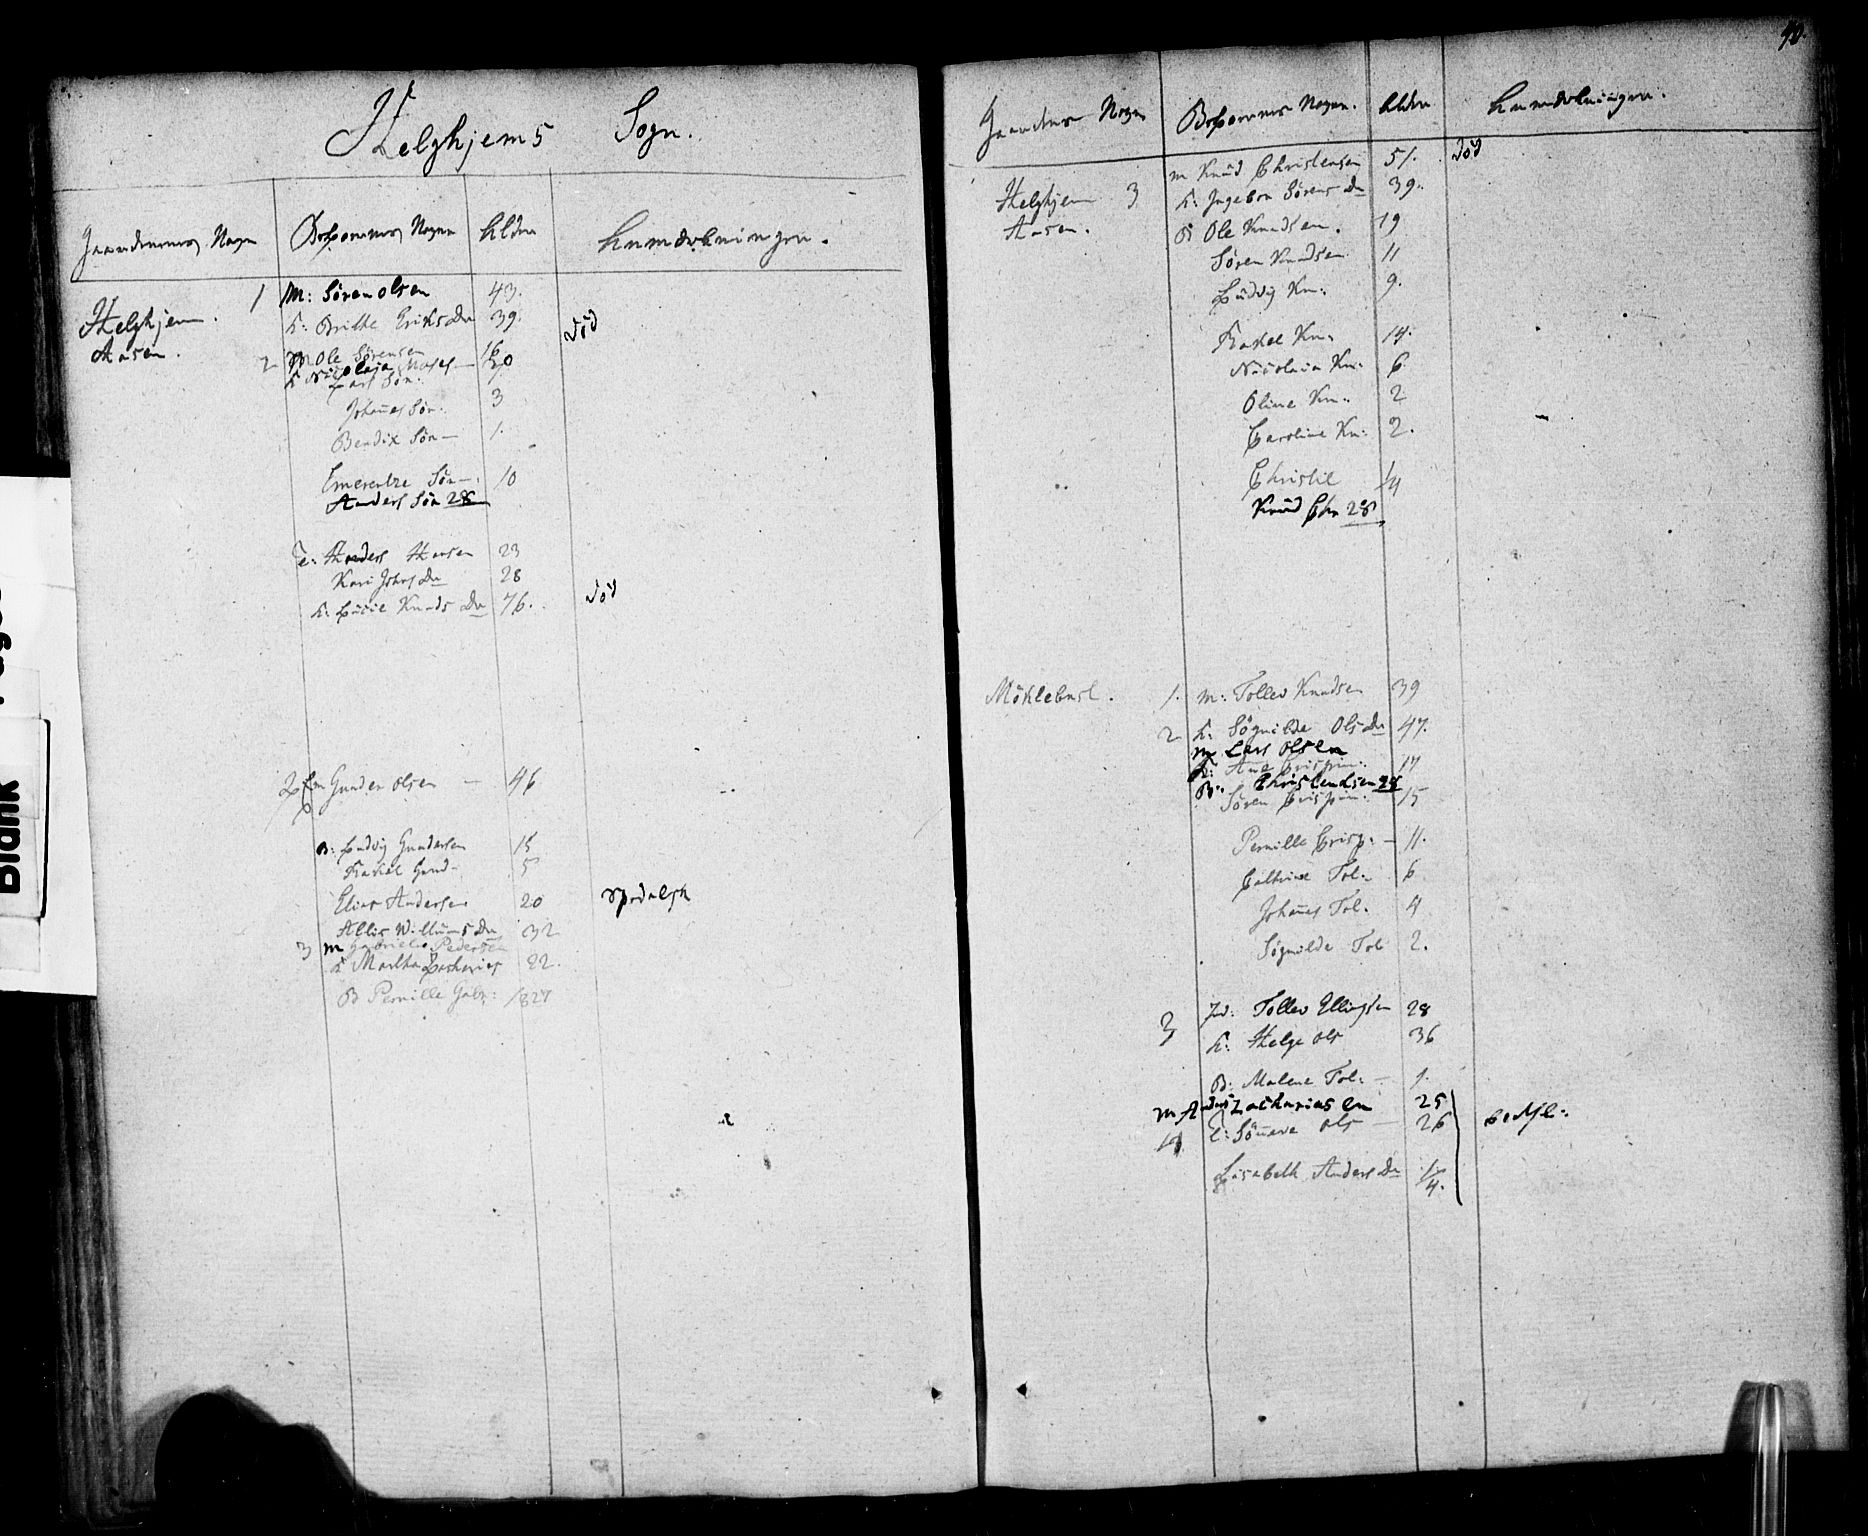 Helghjems Sogn.
Gaardenes Nagn Beboernes Nagn Alder Anmærkninger.
Helghjem 1 M: Søren Olsen 43.
K: Brithe Eriksdr 39. død
Aasen. 2 M Ole Sørensen 16
K Nicolaja Moses — 20
Lars Søn:
Johannes Søn: 3
Bendix Søn — 1.
Emerentze Søn — 10
Anders Søn 28
E: Anders Hansen 23
Kari Johs Dr 28
K: Lucie Knuds Dr 76. død
2 Em Gunder Olsen — 46
B: Ludvig Gundersen 15
Rakel Gund- 5
Elias Andersen 20 spedalsk
Allis Willums Dr 32
3 M Gabriel Pedersen
K Martha Zacharias 22.
B Pernille Gabr: 1827
Gaardens Nagn Beboernes Nagn. Alder Anmærkninger.
M Knud Christensen 51. død
Helghjem 3 K: Ingebor Sørens Dr 39.
Aasen. B Ole Knudsen. 19
Søren Knudsen 11
Ludvig Kn: 9.
Rakel Kn: 14.
Nicolaia Kn: 6
Oline Kn: 2
Caroline Kn: 2.
Christie 1/4
Knud Chr 28
Möklebust. 1. M: Tollev Knudsen 39
2 K: Søgnilde Ols Dr 47.
M Lars Olsen
K: Ane Crispin: 17
B: Christendsen 28
Søren Crispin: 15
Pernille Crisp: — 11.
Cathrine Tol: 6
Johannes Tol. 4
Søgnilde Tol 2.
3 Tollev Ellingsen 28
K: Helge Ols 36
B: Malene Tol: — 1.
M Anders Zachariasen 25
4 E: Sønneve Ols — 26
Lisabeth Anders Dr 1/4.